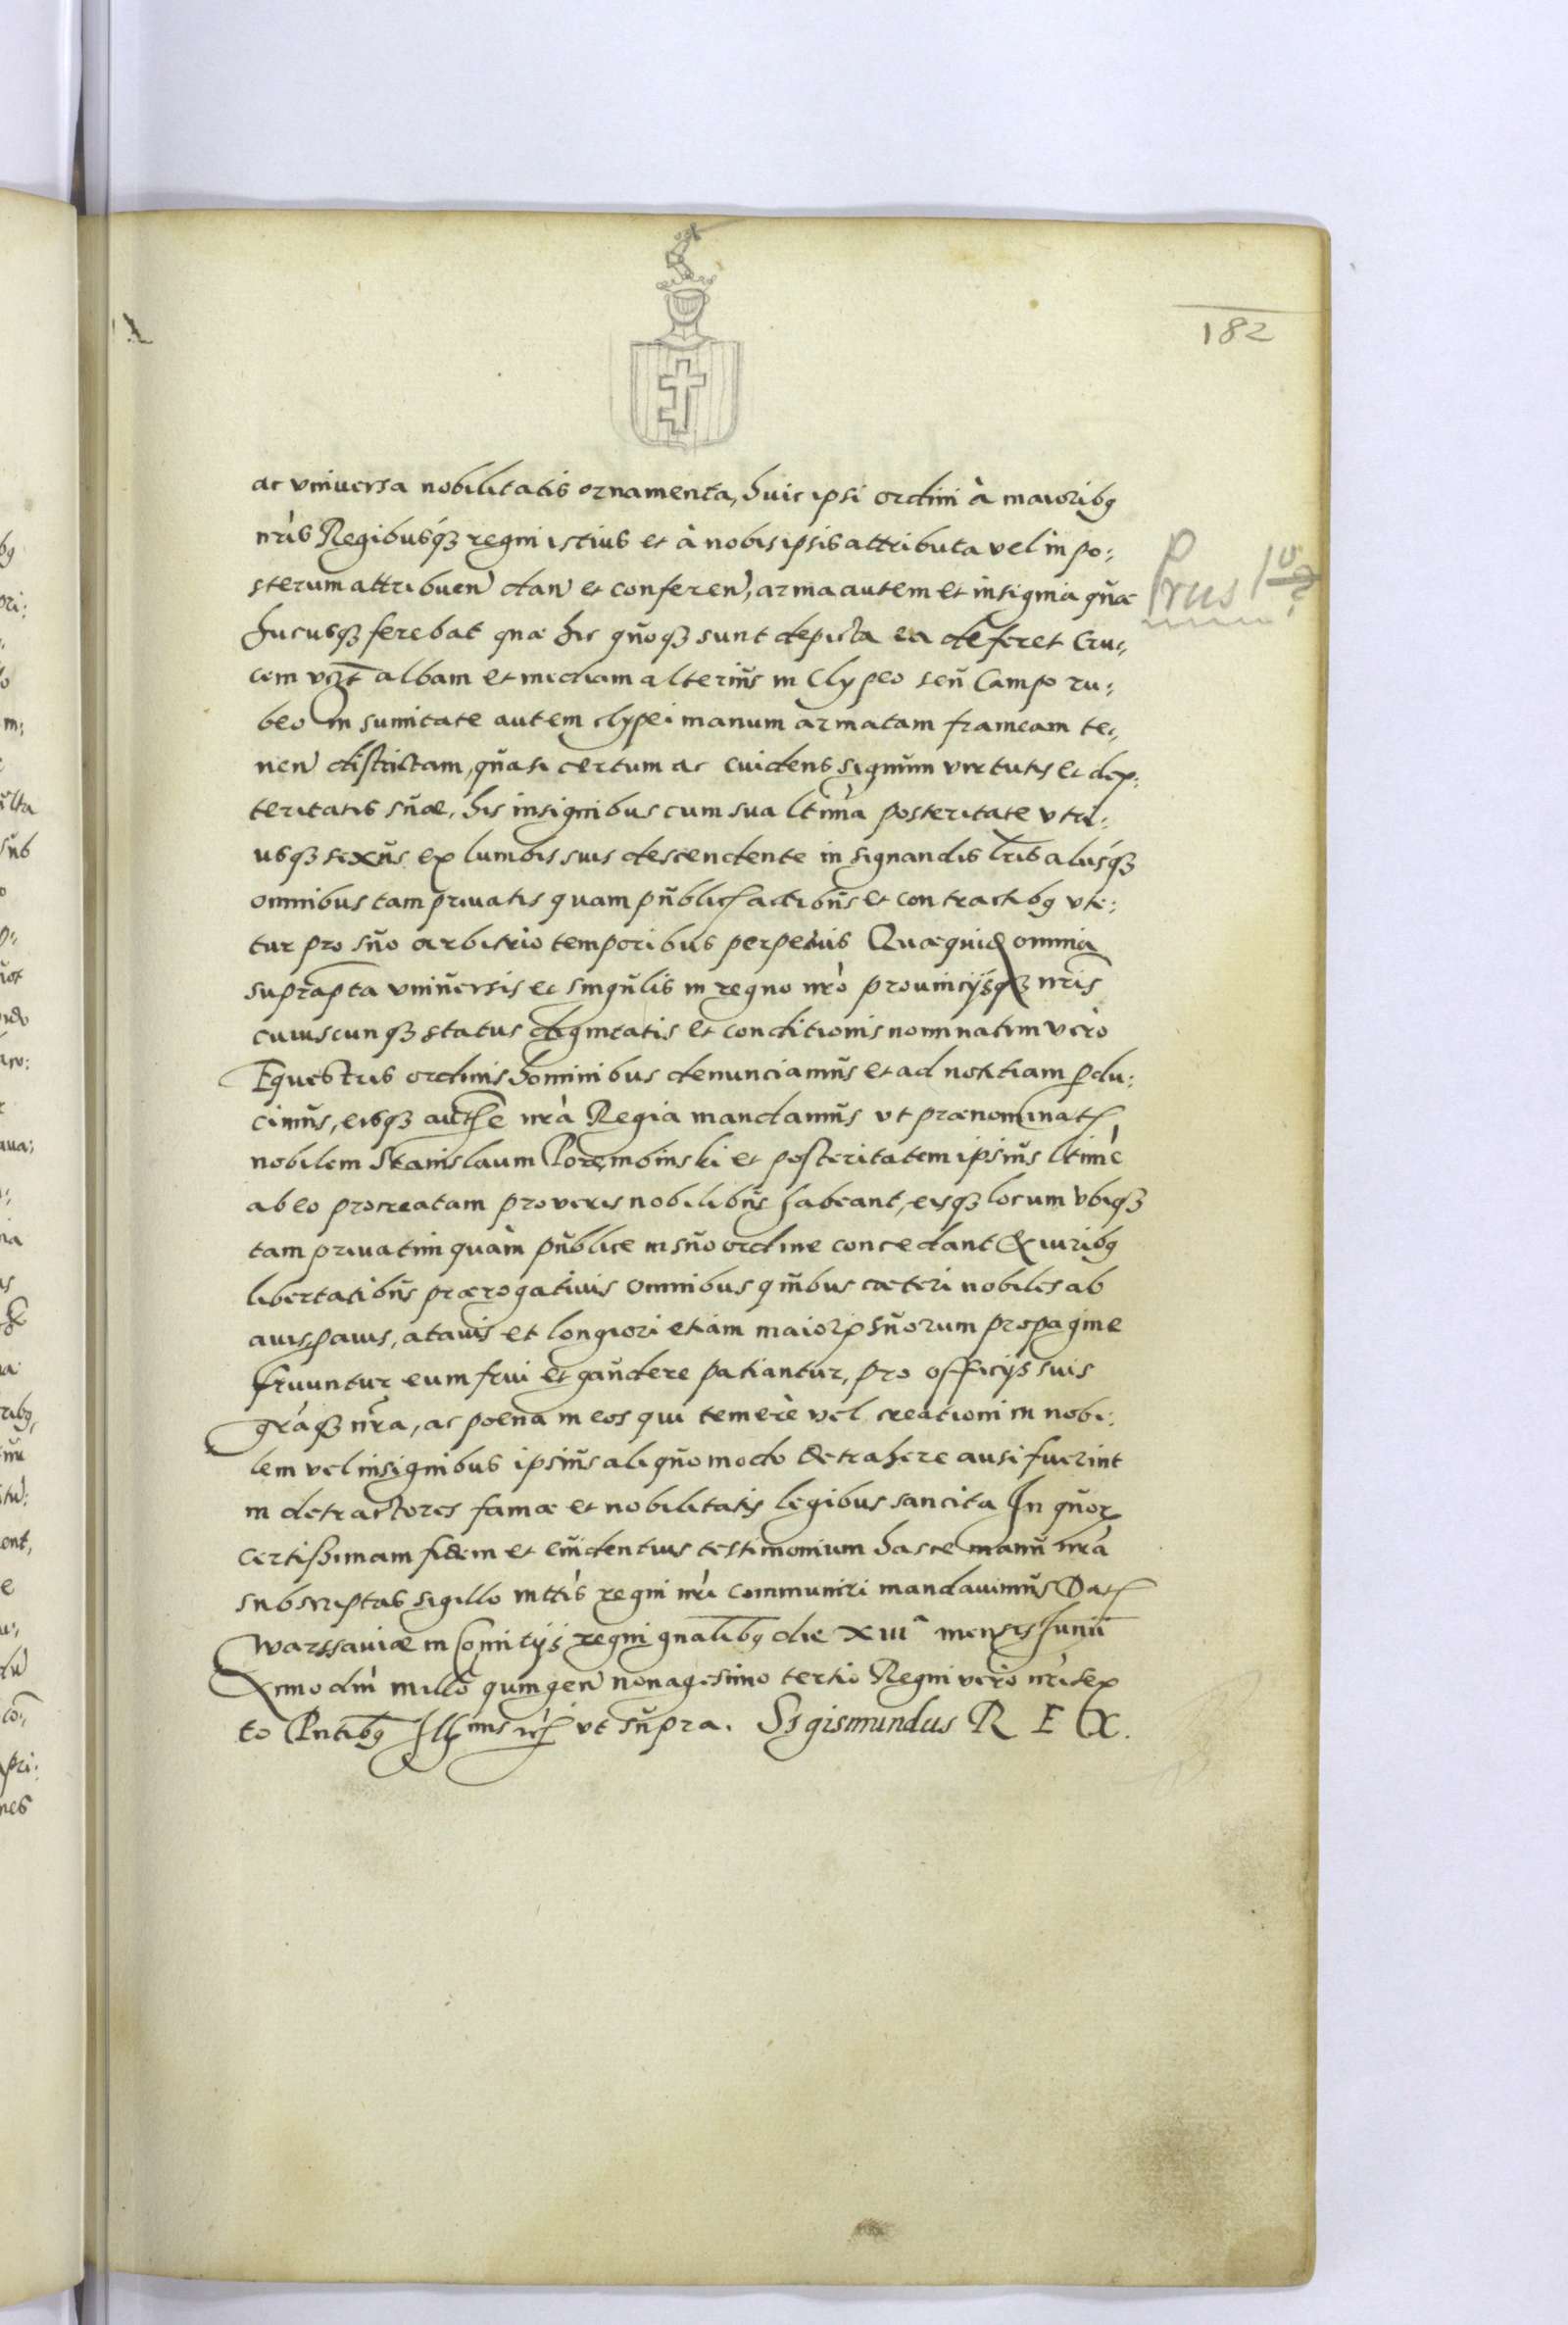 182
ac vniuersa nobilitatis ornamenta, huic ipsi ordini à maioribq
nr̃is Regibusq́ꝫ regni istius et à nobis ipsis attributa vel in po:
sterum attribuen dan et conferen, arma autem et insignia quæ
Prus 1º ?
hucusqꝫ ferebat quæ hic quoqꝫ sunt depicta ea deferet Cru:
cem vꝫt albam et mediam alterius in Clypeo seu Campo ru:
beo In sumitate autem clypei manum armatam frameam te:
nen districtam, quasi certum ac euidens signum virtutis et dex:
teritatis suæ, his insignibus cum sua ltima posteritate vtri:
usqꝫ sexus ex lumbis suis descendente in signandis lr̃is alijsq́ꝫ
omnibus tam priuatis quam publicis actibus et contractibq vte:
tur pro suo arbitrio temporibus perpetuis Quæquid omnia
suprapta vniuersis et singulis in regno nr̃o prouincijsqꝫ nr̃is
cuiuscunqꝫ status dignitatis et conditionis nominatim vero
Equestris ordinis hominibus denunciamus et ad notitiam pdu:
cimus, eisqꝫ autħe nr̃a Regia mandamus vt prænominat
nobilem Stanislaum Porembinski et posteritatem ipsius ltime
ab eo procreatam pro veris nobilibus habeant, eisqꝫ locum vbiqꝫ
tam priuatim quàm publice in suo ordine concedant & iuribq
libertatibus prærogatiuis omnibus quibus cæteri nobiles ab
auis, pauis, atauis et longiori etiam maiorꝝ suorum propagine
fruuntur eum frui et gaudere patiantur, pro officijs suis
gr̃aqꝫ nr̃a, ac poena in eos qui temerè vel creationi in nobi:
lem vel insignibus ipsius aliquo modo detrahere ausi fuerint
in detractores famæ et nobilitatis legibus sancita In quoꝝ
certissimam fidem et euidentius testimonium hasce manu nr̃a
subscriptas sigillo mttis regni nr̃i communiri mandauimus Dat
Warssauiæ in Comitijs regni gnalibq die XIII mensis Junii
Anno dm̃i millo quingen nonagesimo tertio Regni vero nr̃i sex
to Pntibq Illmis vt supra. Sigismundus R E X.